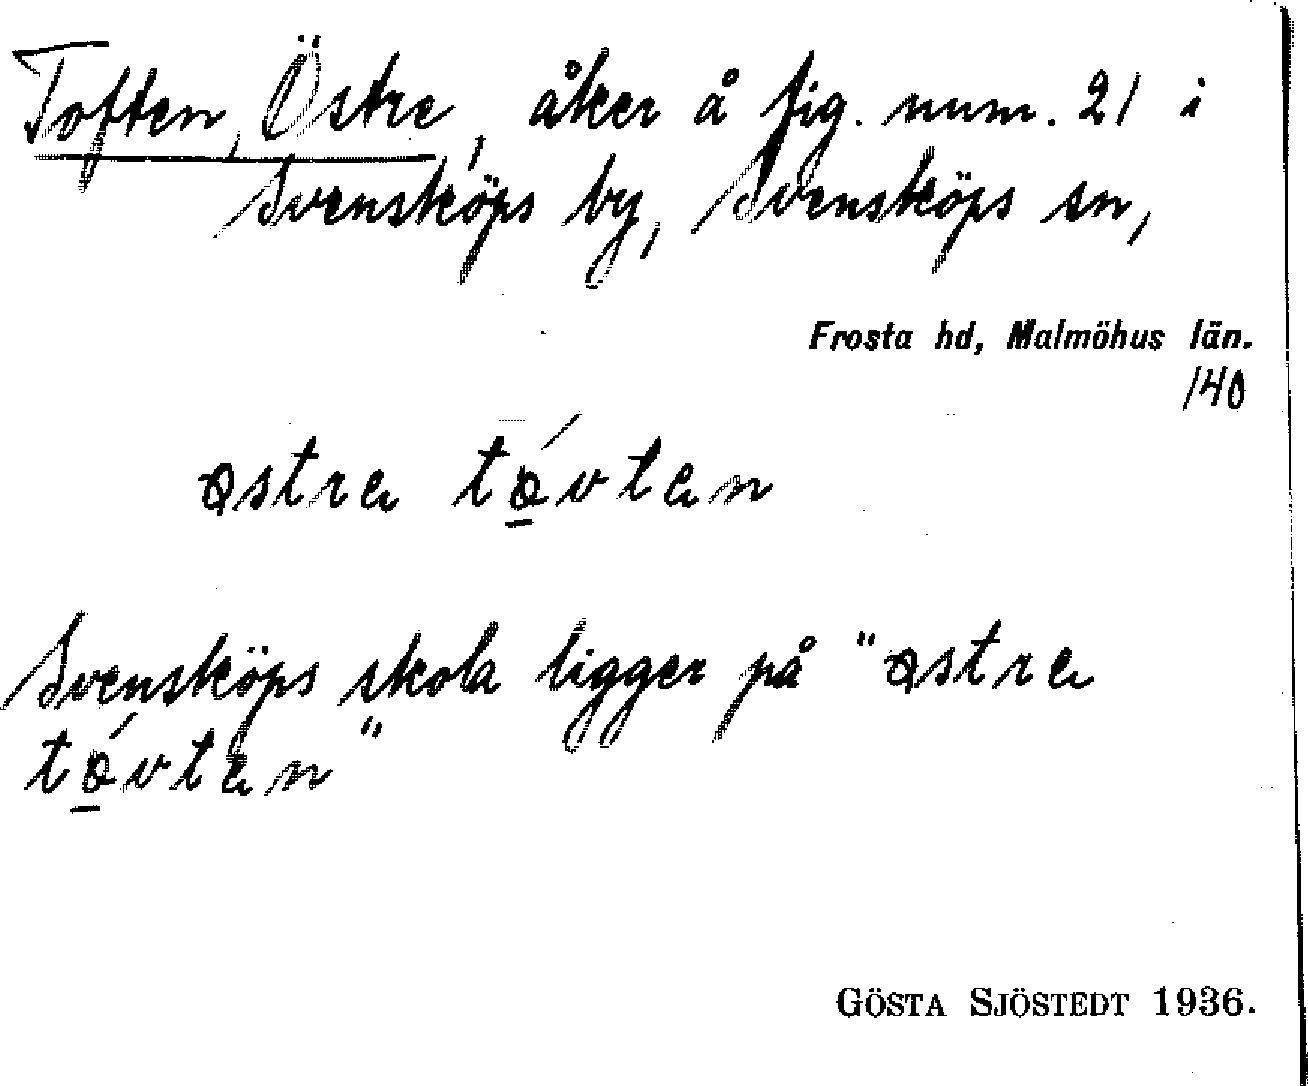 Toften, Östre, åker å fig. num. 21 i
Svensköps by, Svensköps sn,
Frosta hd, Malmöhus län.
140
østra
Svensköps skola ligger på "østra
"
GÖSTA SJÖSTEDT 1936.